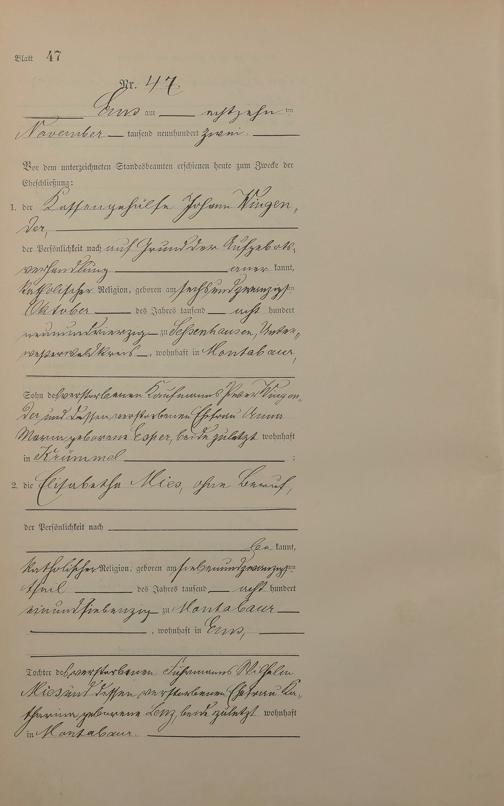 Blatt 47
Nr. 47.
Ems am achtzehn ten
November tausend neunhundert zwei.
Vor dem unterzeichneten Standesbeamten erschienen heute zum Zwecke der
Eheschließung:
1. der Kassengehülfe Johann Wingen-
der,
der Persönlichkeit nach auf Grund der Aufgebots-
verhandlung aner kannt,
katholischer Religion, geboren am sechsundzwanzigsten
Oktober des Jahres tausend acht hundert
neunundvierzig zu Sessenhausen, Unter-
westerwaldkreis, wohnhaft in Montabaur,
Sohn des verstorbenen Kaufmanns Peter Wingen-
der und dessen verstorbenen Ehefrau Anna
Maria geborene Esper, beide zuletzt wohnhaft
in Krümmel ;
2. die Elisabetha Mies, ohne Beruf,
der Persönlichkeit nach
be kannt,
katholischer Religion, geboren am siebenundzwanzigsten
des Jahres tausend acht hundert
einundsiebenzig zu Montabaur
, wohnhaft in Ems,
Tochter des verstorbenen Fuhrmanns Wilhelm
Mies und dessen verstorbenen Ehefrau Ka-
tharina geborene Lenz, beide zuletzt wohnhaft
in Montabaur.